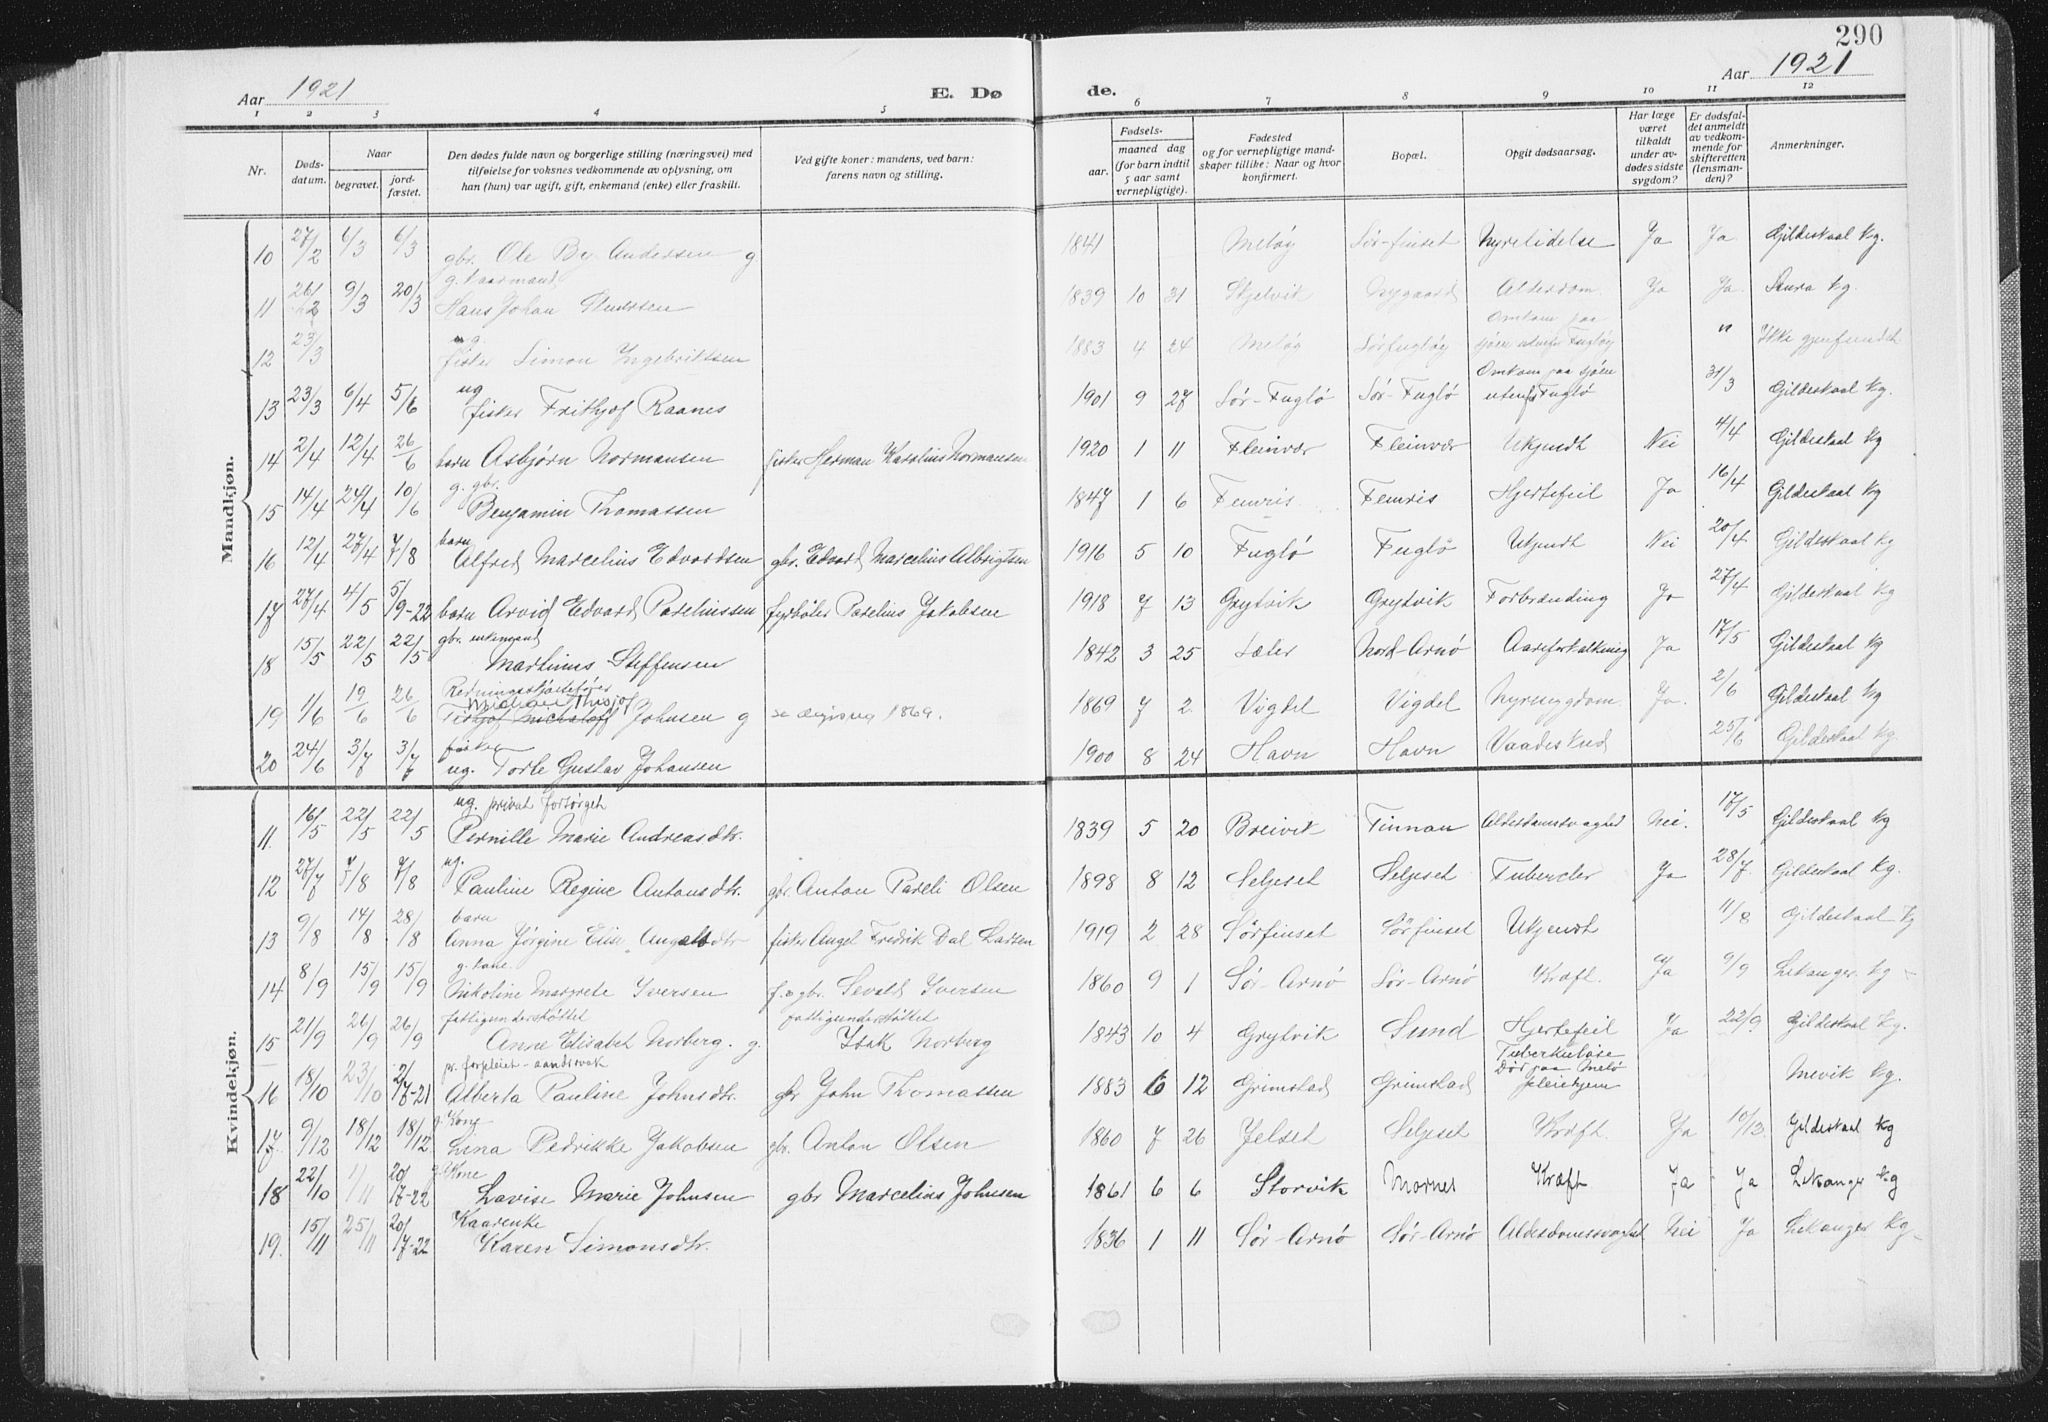 290
Aar 1921 E. Dø de. Aar 1921
1 2 3 4 5 6 7 8 9 10 11 12
Nr. Døds-datum. Naar begravet. jord-fæstet. Den dødes fulde navn og borgerlige stilling (næringsvei) med tilføielse for voksnes vedkommende av oplysning, om han (hun) var ugift, gift, enkemand (enke) eller fraskilt. Ved gifte koner: mandens, ved barn: farens navn og stilling. Fødsels- aar. maaned dag (for barn indtil 5 aar samt vernepligtige). Fødested og for vernepligtige mandskaper tillike: Naar og hvor konfirmert. Bopæl. Opgit dødsaarsag. Har læge været tilkaldt under avdødes sidste sygdom? Er dødsfaldet anmeldt av vedkommende for skifteretten (lensmanden)? Anmerkninger.
Mandkjøn.
10 27/2 6/3 6/3 gbr. Ole Andersen g 1841 Meløy Sør-finset Nyrelidelse Ja Ja Gildeskaal kg.
11 26/2 9/3 20/3 g. kaarmand Hans Johan 1839 10 31 Skjelvik Nygaard Alderdom Ja Ja. Saura kg.
12 23/3 g. fisker Simon Ingebrittsen 1883 4 24 Meløy Sørfugløy Omkom paa sjøen utenfor Fugløy " Ikke gjenfundet
13 23/3 6/4 5/6 ug fisker Frithjof Raanes 1901 9 27 Sør-Fuglø Sør-Fuglø Omkom paa sjøen utenfor Fuglø 31/3 Gildeskaal kg.
14 2/4 12/4 26/6 barn Asbjørn Normansen fisker Herman Karolius Normansen 1920 1 11 Fleinvær Fleinvær Ukjendt Nei 4/4 Gildeskaal kg
15 14/4 24/4 10/6 g. gbr. Benjamin Thomassen 1847 1 6 Femris Femris Hjertefeil Ja 16/4 Gildeskaal kg
16 12/4 27/4 7/8 barn Alfred Marcelius Edvardsen gbr. Edvard Marcelius Albrigtsen 1916 5 10 Fuglø Fuglø Ukjendt Nei 20/4 Gildeskaal kg
17 27/4 4/5 5/9-22 barn Arvid Edvard Pareliussen fyrbøter Parelius Jakobsen 1918 7 13 Grytvik Grytvik Forbrænding Ja 27/4 Gildeskaal kg
18 15/5 22/5 22/5 gbr. enkemand Martinus Steffensen 1842 3 25 Sæter Nord-Arnø Aareforkalkning Ja 17/5 Gildeskaal kg
19 1/6 19/6 26/6 Redningsskøitefører Johnsen g 1869. 1869 7 2 Vigdel Vigdel Nyresygdom Ja. 2/6 Gildeskaal kg
20 24/6 3/7 3/7 fisker ug. Torle Gustav Johansen 1900 8 24 Havn Havn Vaadeskud 25/6 Gildeskaal kg.
Kvindekjøn.
11. 16/5 22/5 22/5 ug. privat forsørget Pernille Marie Andreasdtr. 1839 5 20 Breivik Finnan Alderdomssvaghed Nei. 17/5 Gildeskaal kg
12 27/7 7/8 7/8 ug. Pauline Regine Antonsdtr. gbr. Anton Pareli Olsen 1898 8 12 Seljeset Seljeset Tubercler Ja 28/7. Gildeskaal kg.
13 9/8 14/8 28/8 barn Anna Jørgine Elise Angelsdtr fisker Angel Fredrik Dal Larsen 1919 2 28 Sørfinset Sørfinset Ukjendt 11/8 Gildeskaal kg
14 8/9 15/9 15/9 g. kone. Nikoline Margrete Iversen gbr. Sevald Iversen 1860 9 1 Sør-Arnø Sør-Arnø Kræft. Ja 9/9 Lekanger kg
15 21/9 26/9 26/9 fattigunderstøttet Anne Elisabet Norberg. g. fattigunderstøttet Isak Norberg 1843 10 4 Grytvik Sund Hjertefeil Ja 22/9 Gildeskaal kg.
16 18/10 23/10 2/7-21 pr. forpleiet - aandssvak Alberta Pauline Johnsdtr. gbr John Thomassen 1883 6 12 Grimstad Grimstad Tuberkuløse Død paa Melø pleiehjem Mevik kg.
17. 9/12 18/12 18/12 g. Kone Lina Pedrikke Jakobsen gbr. Anton Olsen 1860 7 26 Jelset Seljeset Kræft. Ja 10/12. Gildeskaal kg
18 22/10 1/11 20/7-22 g. Kone Lavise Marie Johnsen gbr Marcelius Johnsen 1861 6 6 Storvik Mornes Kræft Ja Ja Lekanger kg
19. 15/11 25/11 20/7-22 Kaarenke Karen Simonsdtr. 1836 1 11 Sør-Arnø Sør-Arnø Alderdomssvaghet Nei Ja Lekanger kg